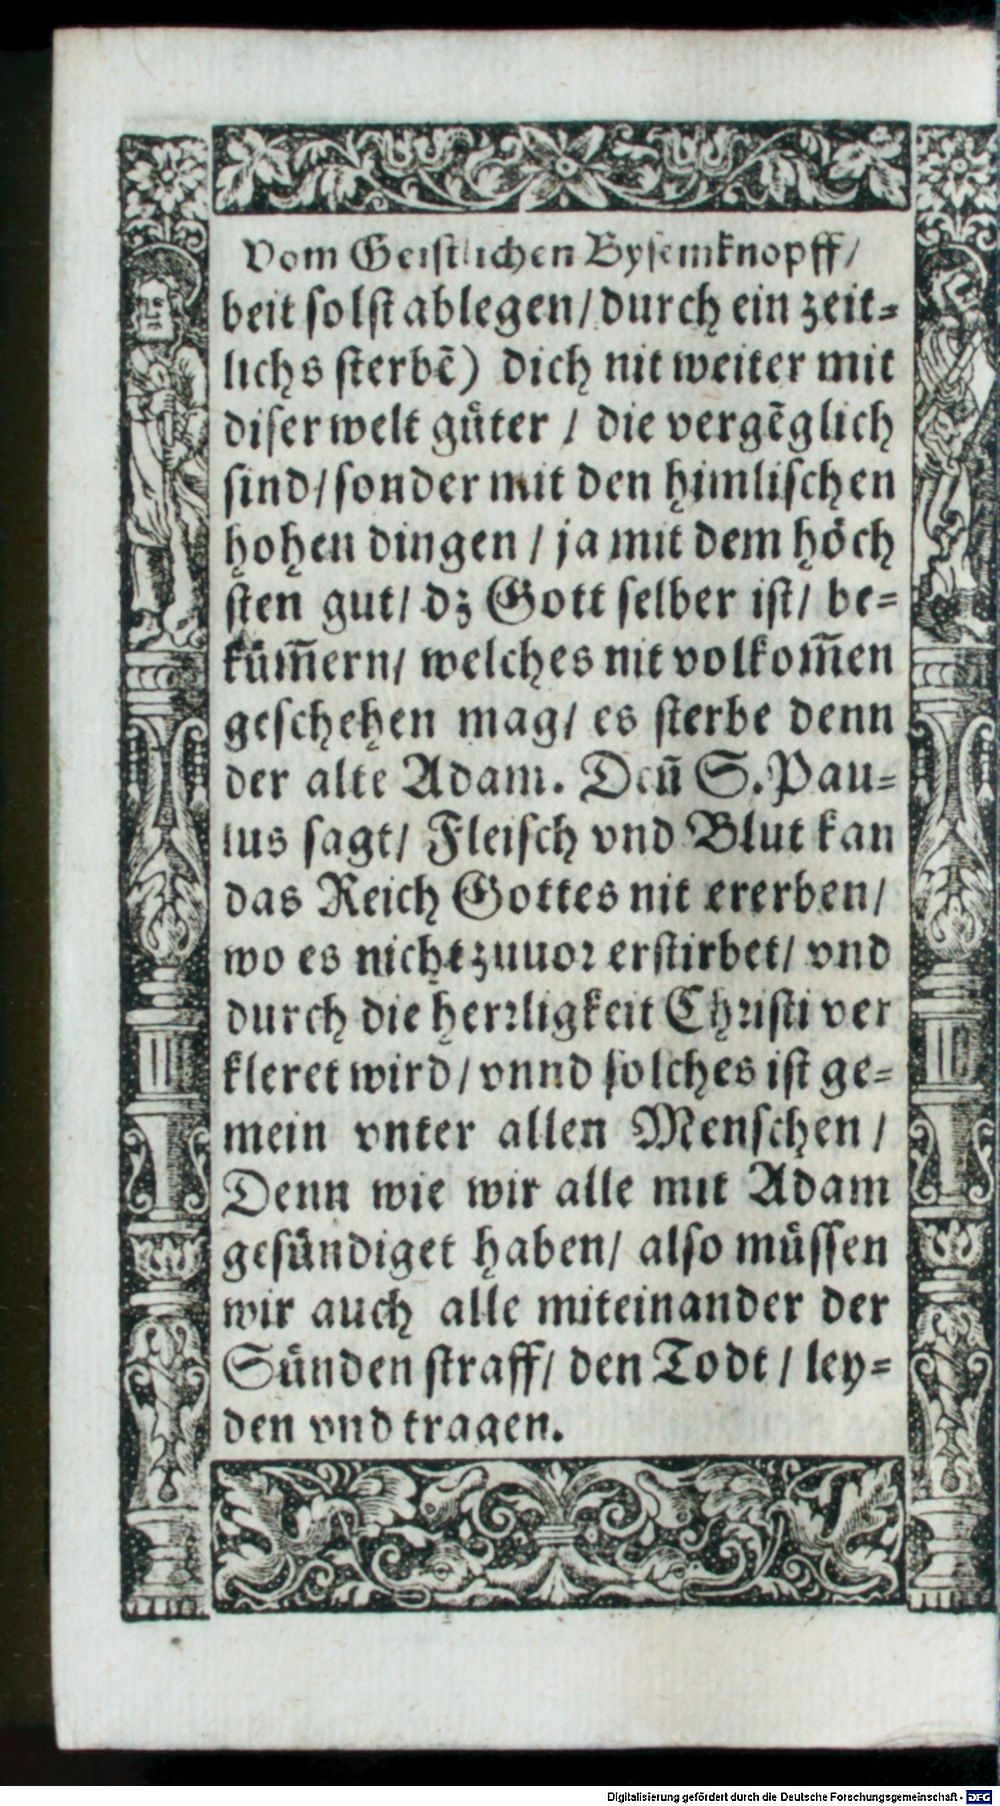 Vom Geistlichen Bysemknopff/
beit solst ablegen/ durch ein zeit=
lichs sterbẽ) dich nit weiter mit
diser welt guͤter / die vergẽglich
sind/ sonder mit den himlischen
hohen dingen / ja mit dem hoͤch
sten gut/ dz Gott selber ist/ be=
kuͤm̃ern/ welches nit volkom̃en
geschehen mag/ es sterbe denn
der alte Adam. Deñ S. Pau=
lus sagt/ Fleisch vnd Blut kan
das Reich Gottes nit ererben/
wo es nicht zuuor erstirbet/ vnd
durch die herrligkeit Christi ver
kleret wird/ vnnd solches ist ge=
mein vnter allen Menschen /
Denn wie wir alle mit Adam
gesuͤndiget haben/ also muͤssen
wir auch alle miteinander der
Suͤnden straff/ den Todt / ley=
den vnd tragen.
Digitalisierung gefördert durch die Deutsche Forschungsgemeinschaft - DFG